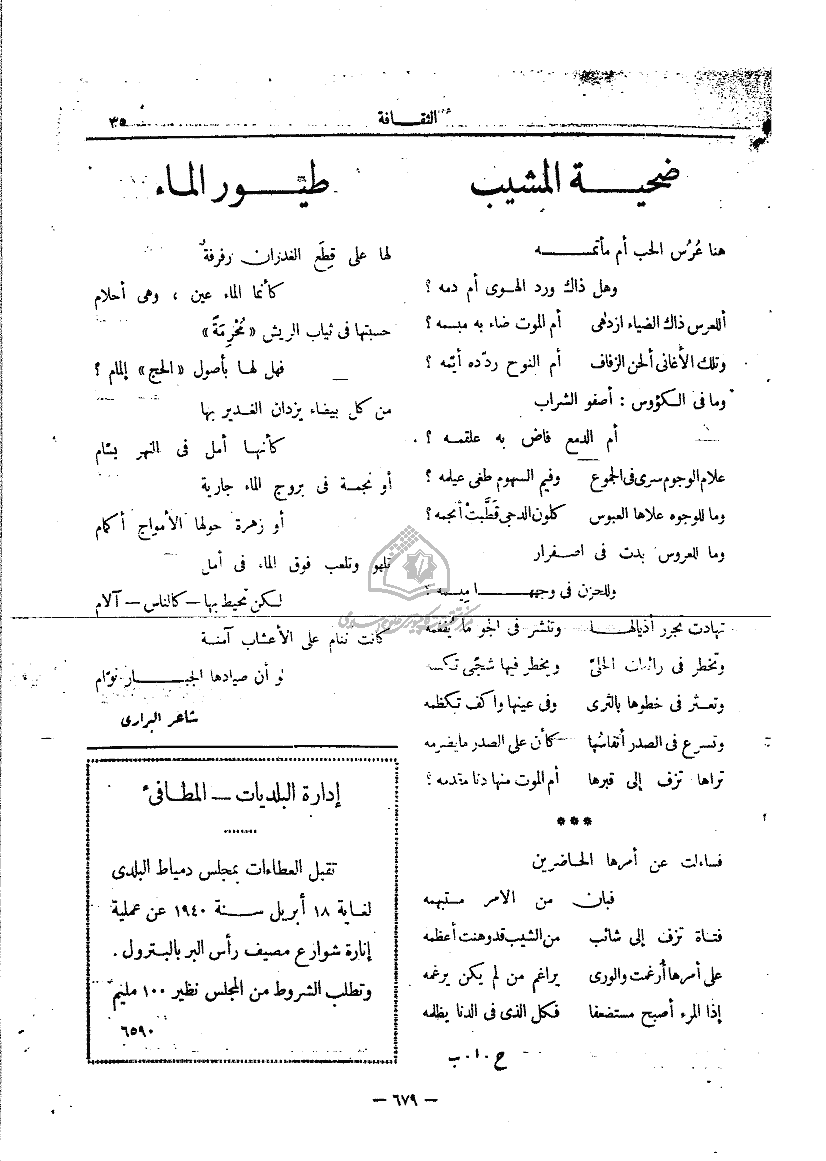 الثقافة
٣٥
ضحية المشيب
هنا عُرس الحب أم مأتمه
وهل ذاك ورد الهوى أم دمه ؟
أللعرس ذاك الضياء ازدهى أم الموت ضاء به مبسمه ؟
وتلك الأغانى ألحن الزفاف أم النوح ردّده أيّمه ؟
وما فى الكؤوس : أصفو الشراب
أم الدمع فاض به علقمه ؟
علام الوجوم سرى فى الجموع وفيم السهوم طغى عيلمه ؟
وما للوجوه علاها العبوس كلون الدجى قَطَّبتْ أنجمه ؟
وما للعروس بدت فى اصفرار
وللحزن فى وجهها ميسمه ؟
تهادت تجرر أذيالها وتنشر فى الجو ما يفغمه
وتخطر فى رائعات الحلىّ ويخطر فيها شجىً تكتمه
وتعثر فى خطوها بالثرى وفى عينها واكف تكظمه
وتسرع فى الصدر أنفاسُها كأن على الصدر ما يضرمه
تراها تزف إلى قبرها أم الموت منها دنا مقدمه ؟
***
فساءلت عن أمرها الحاضرين
فبان من الأمر مستبهمه
فتاة تزف إلى شائب من الشيب قد وهنت أعظمه
على أمرها أُرغمت والورى يراغم من لم يكن يرغمه
إذا المرء أصبح مستضعفا فكل الذى فى الدنا يظلمه
ح . ا . ب
طيور الماء
لها على قِطَع الغدران رفرفةٌ
كأنما الماء عين ، وهى أحلام
حسبتها فى ثياب الريش «مُحْرِمَةً»
فهل لها بأصول «الحج» إلمام ؟
من كل بيضاء يزدان الغدير بها
كأنها أمل فى النهر بسّام
أو نجمة فى بروج الماء جارية
أو زهرة حولها الأمواج أكمام
تلهو وتلعب فوق الماء فى أمل
لكن تحيط بها – كالناس – آلام
كانت تنام على الأعشاب آمنة
لو أن صيادها الجبار نوّام
شاعر البرارى
إدارة البلديات – المطافىء
تقبل العطاءات بمجلس دمياط البلدى
لغاية ١٨ أبريل سنة ١٩٤٠ عن عملية
إنارة شوارع مصيف رأس البر بالبترول .
وتطلب الشروط من المجلس نظير ١٠٠ مليم
٦٥٩٠
– ٦٧٩ –